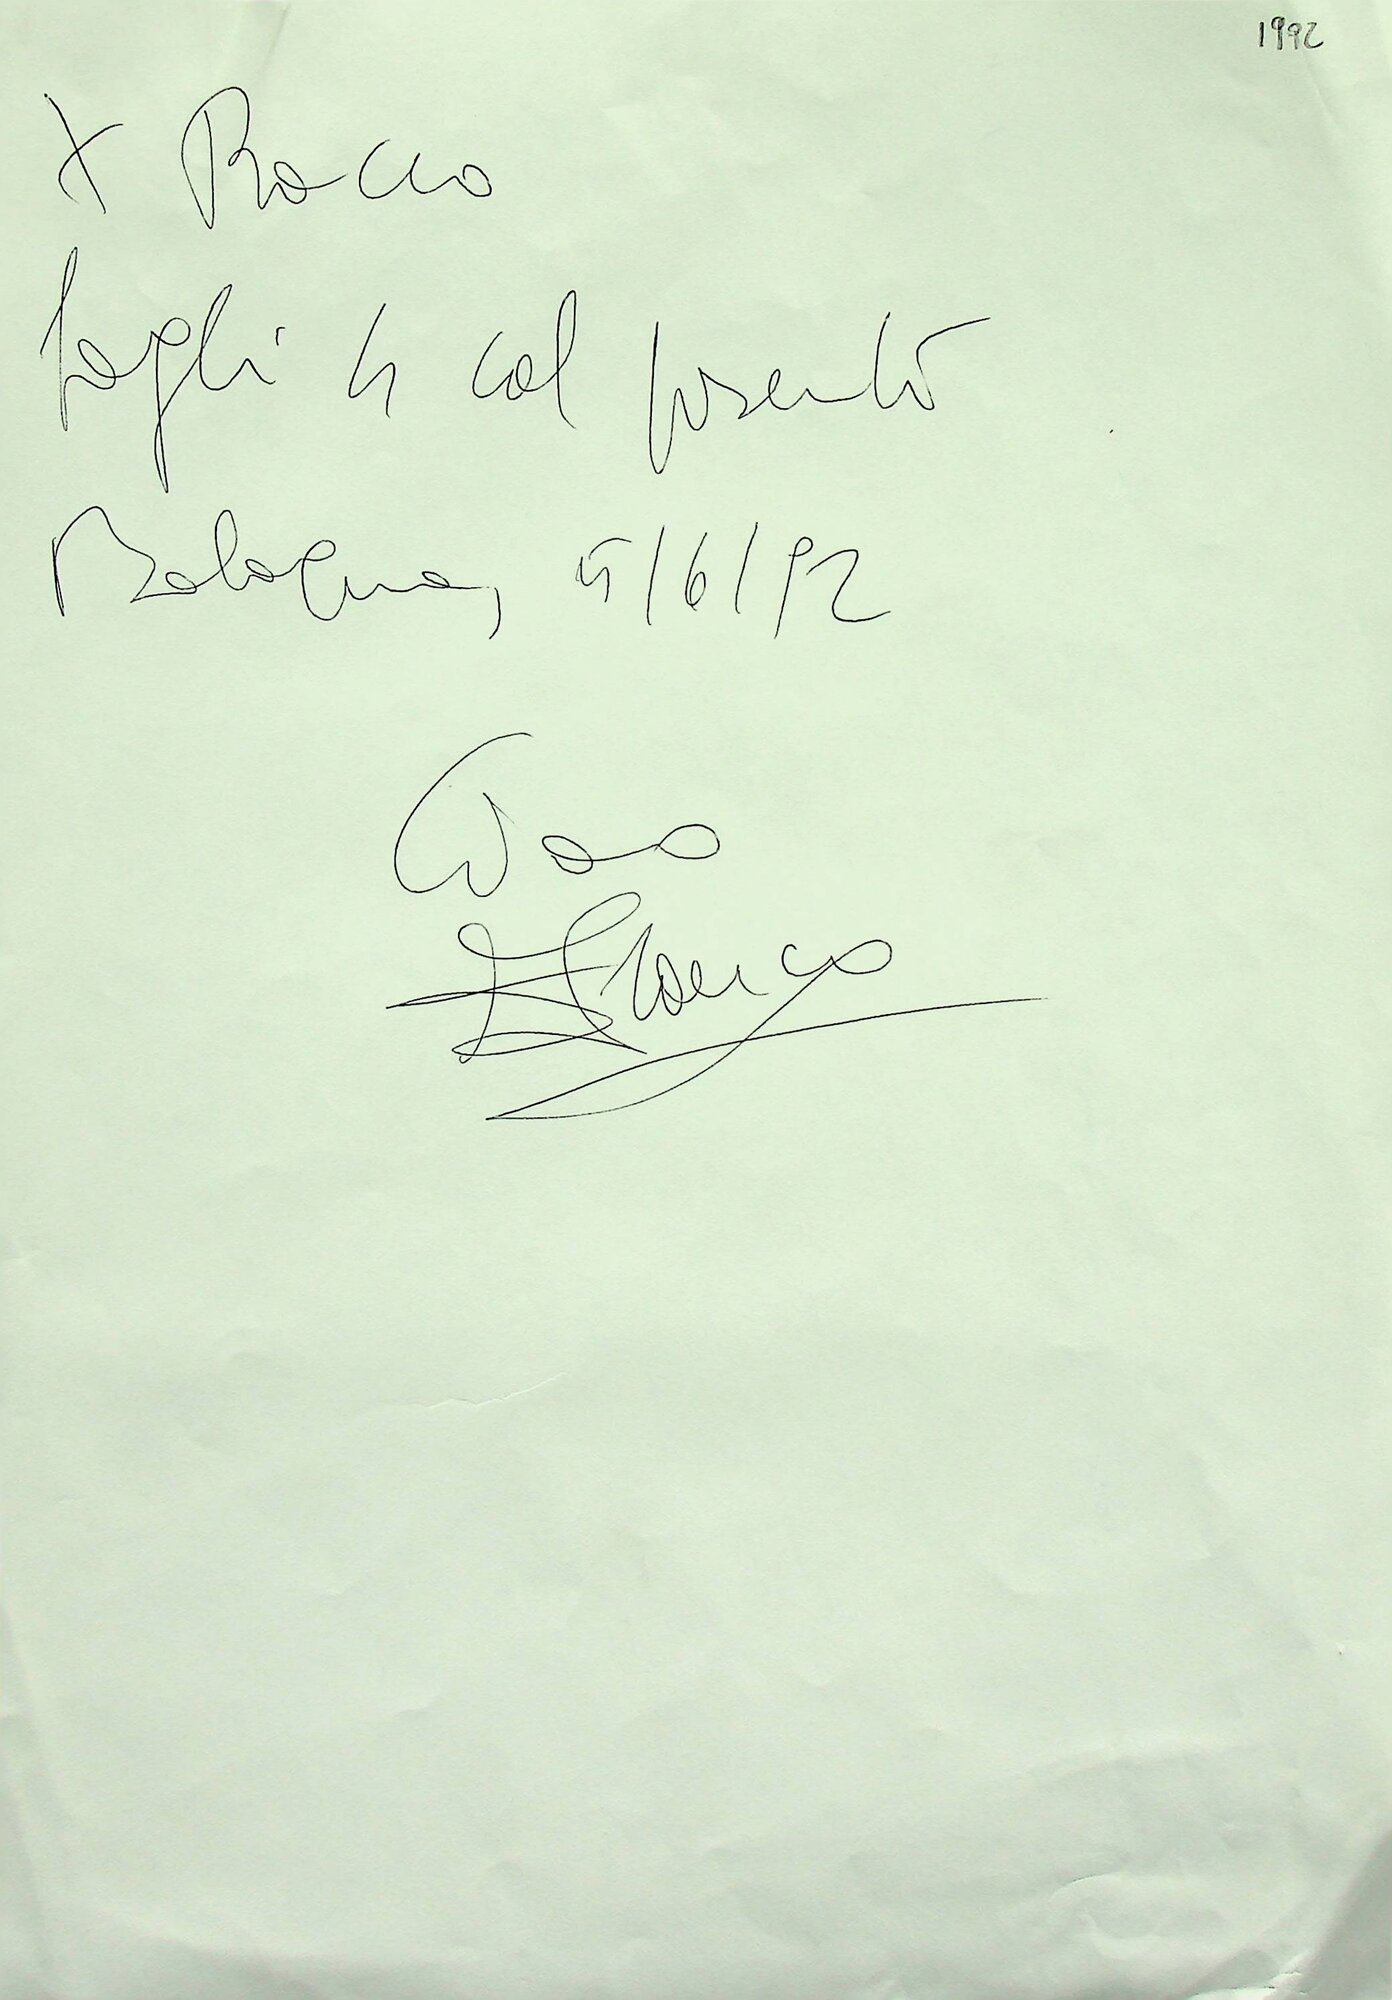 1992
x Rocco
fogli 4 col presente
Bologna, 5/6/92
Ciao
Franco